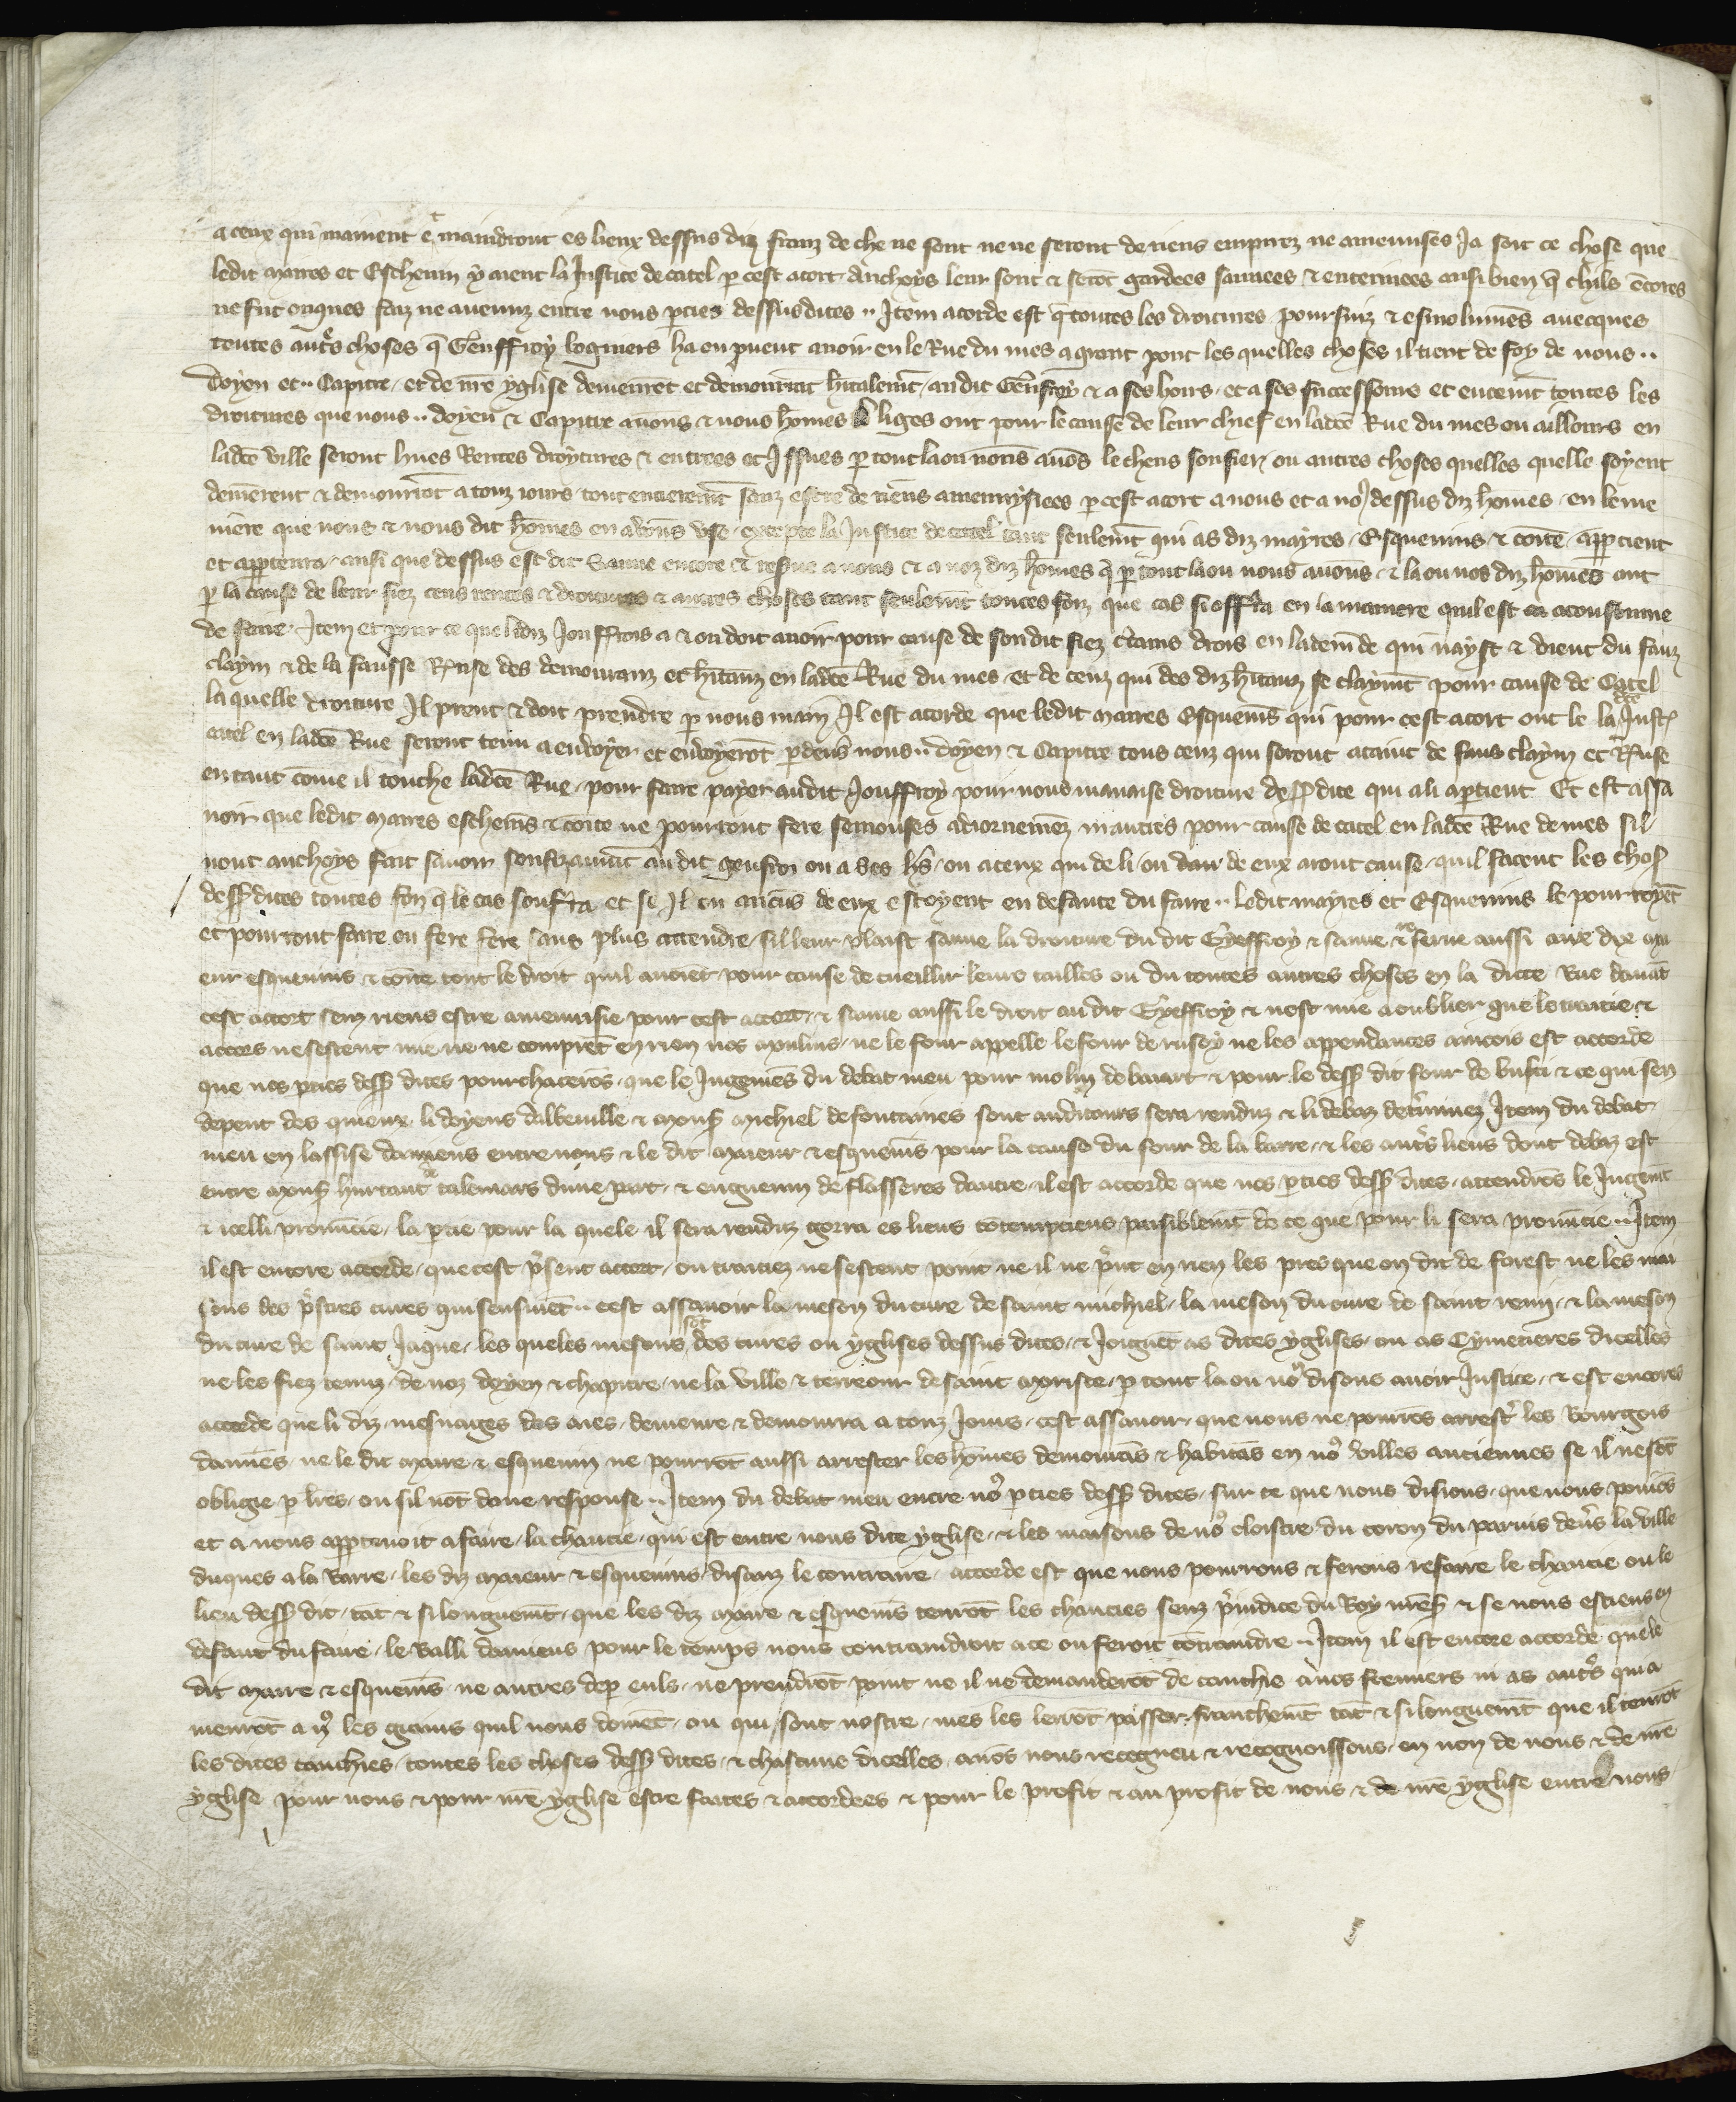 a ceux qui mainent et maindront es lieux dessus diz franz de che ne sont ne ne seront de riens empirez ne amenuises Ja soit ce chose que
ledit maires et Eschevin y aient la Justice de catel p cest acort anchoys leur sont & serot gardees sauvees & enterinees ausi bien q chils encores
ne fut onques faiz ne avenuz entre nous pties dessusdites .. Item acorde est q toutes les droitures poursuiz & esmolumens avecques
toutes autres choses q Geuffroy logniers ha ou puent avoir en le Rue du mes a grant pont les quelles choses il tient de foy de nous ..
doyen et .. Capitre et de nre yglise demeurent et demourrat hitalemt au dit Geuffroy & a ses hoirs et a ses successours et encemt toutes les
droitures que nous .. doyen & Capitre avons & nous homes liges ont pour le cause de leur chief en ladce Rue du mes ou aillours en
ladce ville seront lives Rentes droytures & entrees et Issues p tout la ou nous avos le chens son fier ou autres choses quelles quelle soyent
demerent & demourrat a touz iours tout entierement sanz estre de riens amenuysiees p cest acort a nous et a noz dessus diz homes en leme
niere que nous & nous dit homes en avons use excepte la Justice de catel tant seulemt qui as diz mayres Esquevins & comte apptient
et apptenra ausi que dessus est dit Sauve encore & resve a nous & a noz diz homes q p tout la ou nous avons & la ou nos diz homes ont
p la cause de leur fiez cens rentes & droitures & autres choses tant seulemt toutes foiz que cas si offrra en la maniere quil est acoustume
de faire Item et pour ce que lidiz Jouffrois a & ou doit avoir pour cause de son dit fiez ctains drois en lademde qui nayst & vient du faux
claym & de la fausse Ruse des demouranz et hitanz en ladce Rue du mes et de ceuz qui des diz hitanz se claymt pour cause de Catel
la quelle droiture Il prent & doit prendre p nous main Il est acorde que ledit maires Esquevis qui pour cest acort ont le la dce Justi
catel en ladce Rue seront tenu a envoyer et envoyerot pdevs nous .. doyen & Capitre tous ceuz qui seront ataint de faus claym et Ruse
en tant come il touche ladce Rue pour faire payer audit Jouffroy pour nous mauaise droiture dessdite qui a li aptient Et est assa
voir que ledit maires eschevis & comte ne pourront fere semonses adiornemez nautres pour cause de catel en ladce Rue de mes sil
nont anchoys fait savoir souffizanmt au dit geufroi ou a ses hs ou a ceux qui de li ou de eux aront cause quil facent les chos
dessdites toutes foiz q le cas soufrra et se Il ou aucus de eux estoyent en defaute du faire .. ledit mayres et Esquevins le pourroyet
et pourront faire ou fere fere sans plus attendre sil leur plaist sauve la droiture du dit Gyeffroy & sauve & reserve aussi aux diz ma
eur esquevins & comte tout le droit quil avoiet pour cause de cueillir leurs tailles ou du toutes autres choses en la dicte Rue davat
cest accort sem riens estre amenuisie pour cest accort & sauve aussi le droit au dit Gyeffroy & nest mie a oublier que le traitie &
accors ne sestent mie ne ne compret en rien nos molins ne le four appelle le four de rusoy ne les appendances aincois est accorde
que nos pties dess dites pourchaceros que le Jugemes du debat meu pour molin de bavart & pour le dess dit four de busci & ce qui sen
depent des quieux li doyens dabbeville & mons michiel de fontaines sont auditours sera renduz & li debaz detminez Item du debat
meu en lassise damiens entre nous & le dit maieur & esquevis pour la cause du four de la barre & les autrs lieus dont debaz est
entre mons hurtaut de talemars dune part & enguerin de flasseres dautre il est accorde que nos pties dess dites attendros le Jugemt
& icelli pronuncie la ptie pour la quele il sera renduz gorra es lieus cotempciens paisiblemt de ce que pour li sera pronucie .. Item
il est encore accorde que cest psent accort ou traitiez ne sestent point ne il ne pnt en rien les pres que on dit de forest ne les mai
sons des pstres cures qui sensuient .. cest assavoir la meson du cure de saint michiel la meson du cure de saint remi & la meson
du cure de saint Jaque les queles mesons sot des cures ou yglises dessus dites & Joignet as dites yglises ou as Cymetieres dicelles
ne les fiez tenuz de noz doyen & chapitre ne la ville & terreour de saint morisce p tout la ou nos disons avoir Justice & est encores
accorde que li diz mesnages des aies demeure & demourra a touz Jours cest assavoir que nous ne pourros arrestr les Bourgois
damies ne le dit maire & esquevin ne pourrot aussi arrester les homes demourans & habitas en nos villes anciennes se il ne sot
obligie p lres ou sil not done response .. Item du debat meu entre nos pties dess dites sur ce que nous disions que nous poiuos
et a nous apptenoit a faire la chaucie qui est entre nous dite yglise & les maisons de nos cloistre du coron du parvis devs la ville
duques a la barre les diz maieur & esquevins disanz le contraire accorde est que nous pourrons & ferons refaire le chaucie ou le
lieu dess dit tat & si longuemt que les diz maire & esquevis tenrot les chaucies senz piudice du Roy nres & se nous estiens en
defaut du faire le Balli damiens pour le temps nous contraindroit a ce ou feroit cotraindre .. Item il est encore accorde que le
dit maire & esquevis ne autres dep euls ne prendrot point ne il ne demanderot de cauchie a nos fremiers ni as autrs qui a
menrot a ns les grains quil nous doivet ou qui sont nostre mes les lerrot passer franchemt tat & si longuemt que il tenrot
les dites cauchies toutes les choses dess dites & chascune dicelles avos nous recogneu & recognoissons en non de nous & de nre
yglise pour nous & pour nre yglise estre faites & accordees & pour le profit & au profit de nous & de nre yglise entre nous